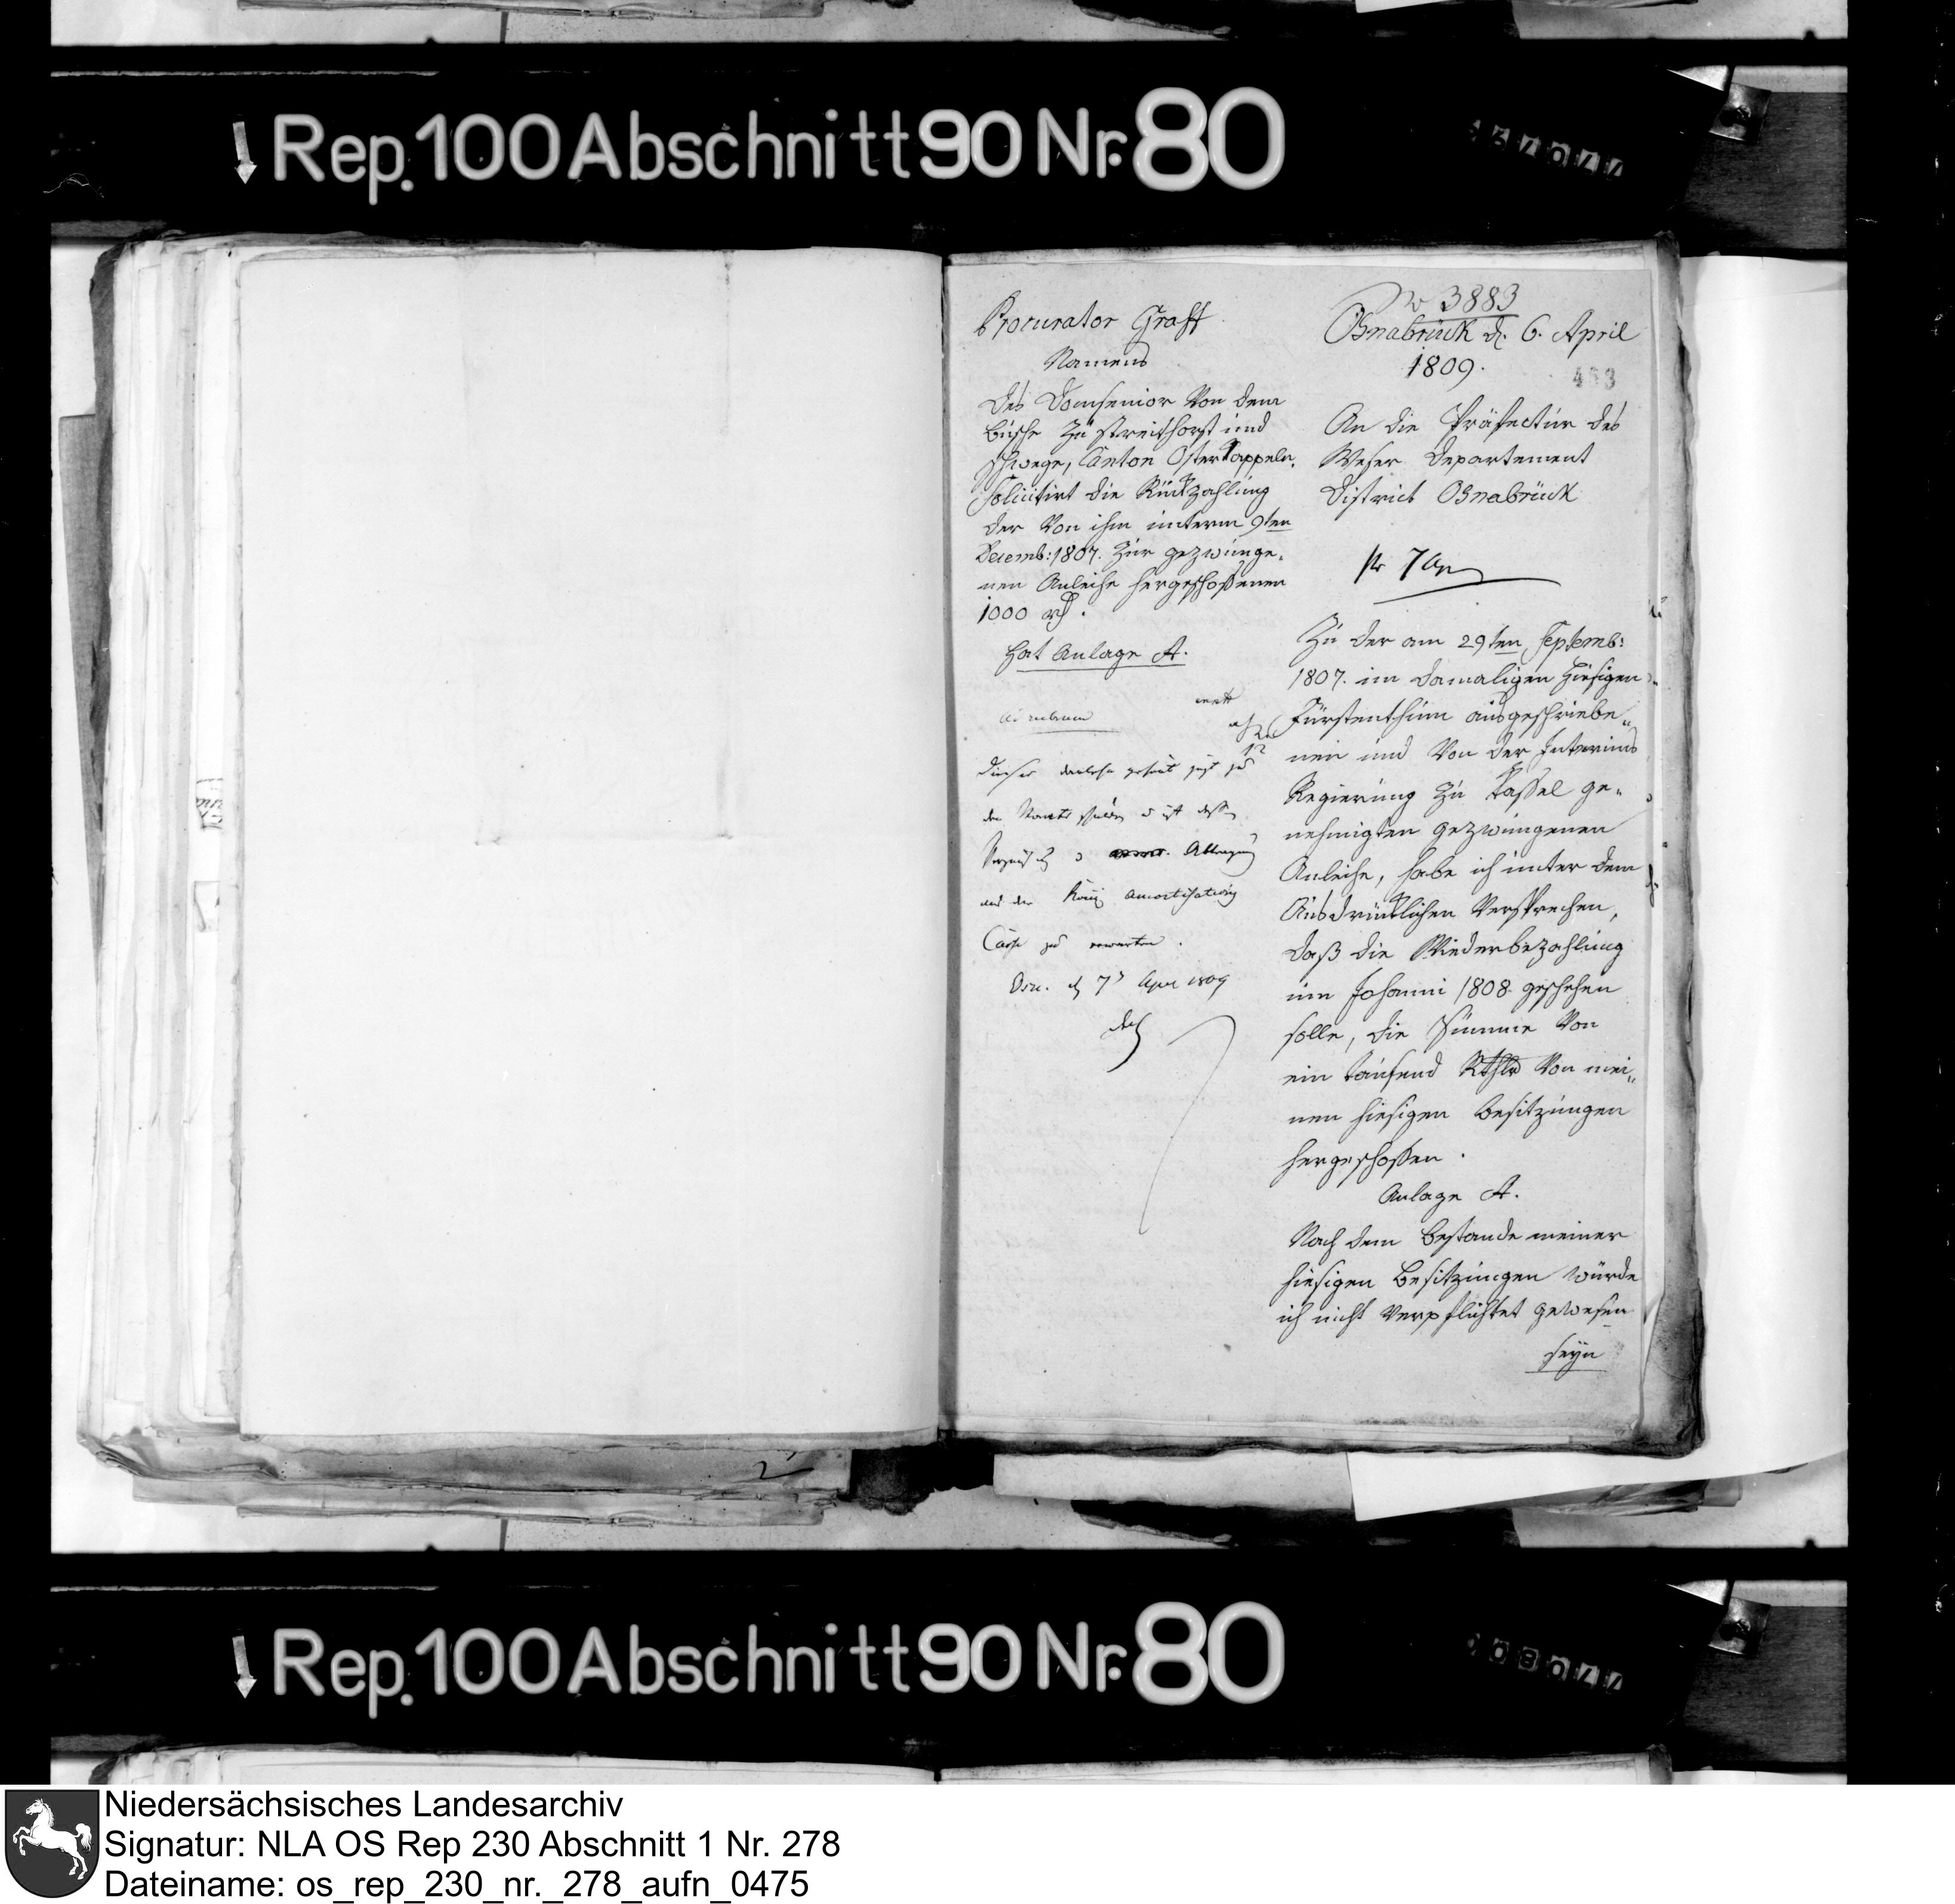 Rep. 100 Abschnitt 90 Nr. 80
Procurator Graff
Namens
des Domsenior von dem
Busche zu Streithorst und
Schwege, Canton Ostercappeln,
solicitirt die Rückzahlung
der von ihm unterm 9ten
Decemb: 1807. zur gezwunge-
nen Anleihe hergeschoßenen
1000 rth.
hat Anlage A.
Dieses Darlehn gehört jetzt zu
den Staats Schulden u ist deßen
u Abtragung
aus der Königl Amortisations
Casse zu erwarten.
Osn. d 7 Apr 1809
No 3883
Osnabrück d. 6. April
1809.
453
An die Präfectur des
Weser Departement
District Osnabrück
pr 7 Apr
Zu der am 29ten Septemb:
1807. im damaligen hiesigen
Fürstenthum ausgeschriebe„
nen und von der Interims
Regierung zu Cassel ge„
nehmigten gezwungenen
Anleihe, habe ich unter dem
Ausdrücklichen Versprechen,
daß die Wiederbezahlung
um Johanni 1808 geschehen
solle, die Summe von
ein tausend Rthlr von mei„
nen hiesigen Besitzungen
hergeschoßen.
Anlage A.
Nach dem Bestande meiner
hiesigen Besitzungen würde
ich nicht verpflichtet gewesen
seyn
Rep. 100 Abschnitt 90 Nr. 80
Niedersächsisches Landesarchiv
Signatur: NLA OS Rep 230 Abschnitt 1 Nr. 278
Dateiname: os_rep_230_nr._278_aufn_0475